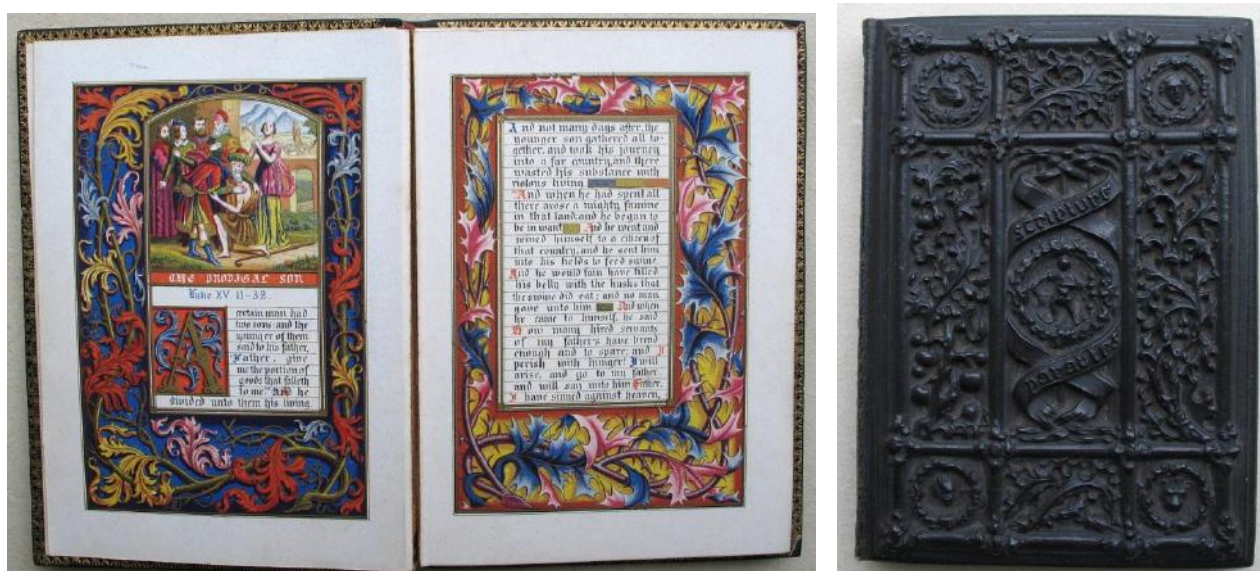 THE PRODIGAL SON
Luke XV 11-32.
A certain man had
two sons: and the
younger of them
said to his father,
Father, give
me the portion of
goods that falleth
to me." And he
divided unto them his living
And not many days after, the
younger son gathered all to-
gether, and took his journey
into a far country, and there
wasted his substance with
riotous living
"And when he had spent all
there arose a mighty famine
in that land; and he began to
be in want And he went and
joined himself to a citizen of
that country, and he sent him
into his fields to feed swine.
And he would fain have filled
his belly with the husks that
the swine did eat: and no man
gave unto him And when
he came to himself, he said
How many hired servants
of my father's have bread
enough and to spare; and I
perish with hunger! I will
arise, and go to my father
and will say unto him Father,
I have sinned against heaven,
SCRIPTURE
PARABLES